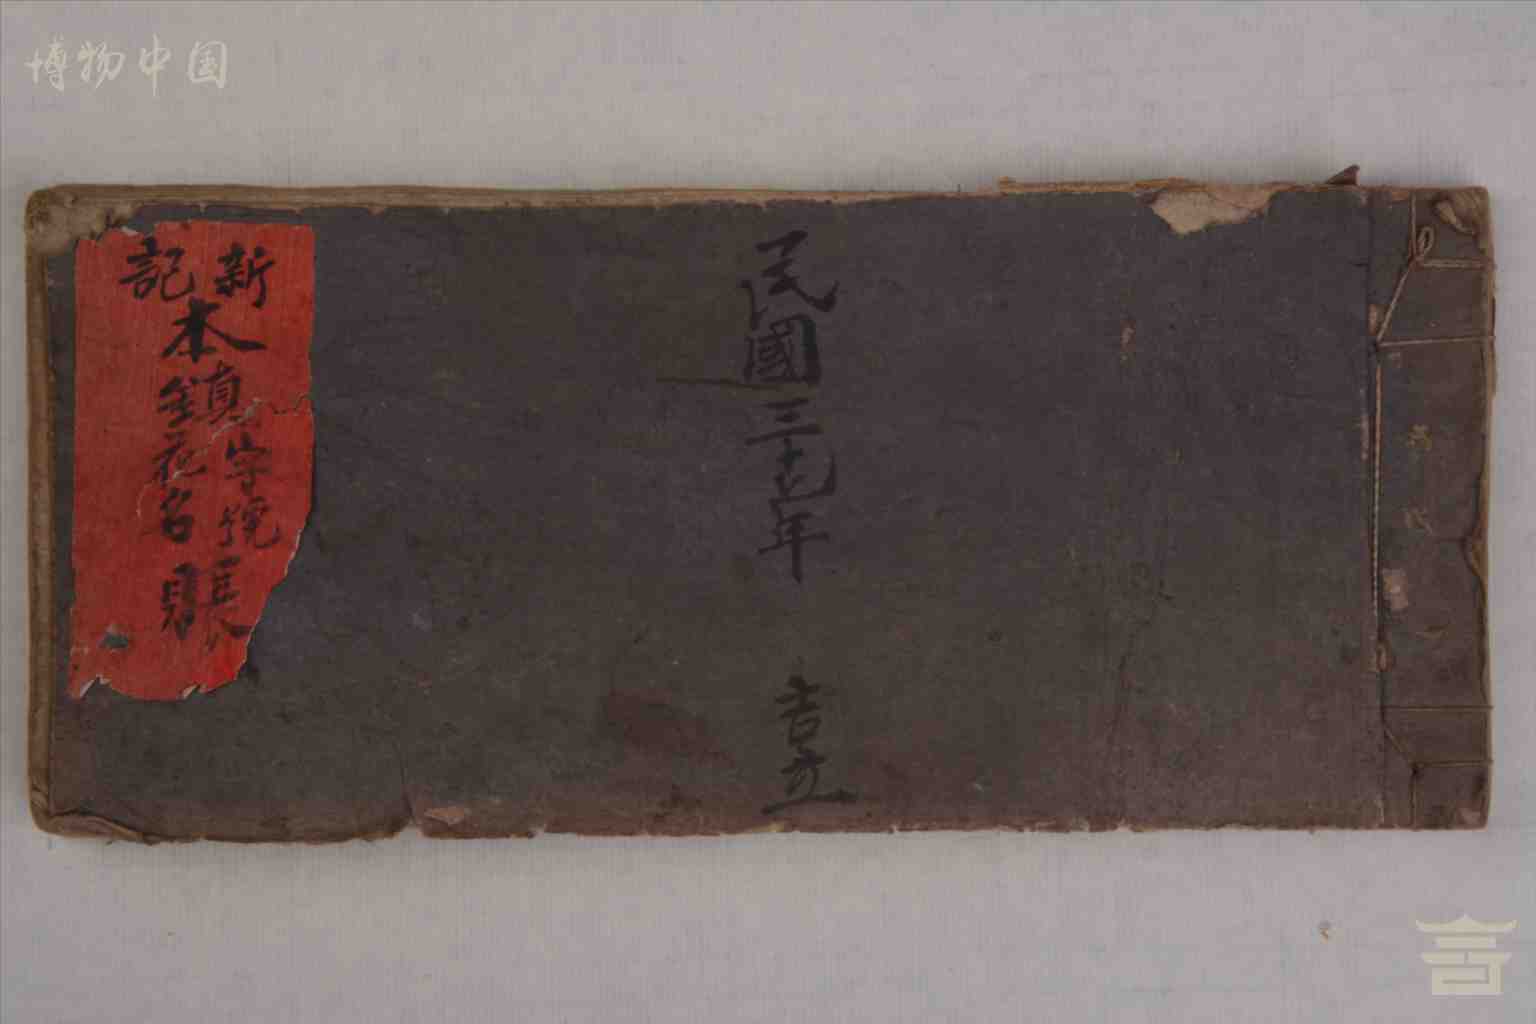 博物中国
新記
本鎮
字號
花名
賬
民國三十七年 吉立